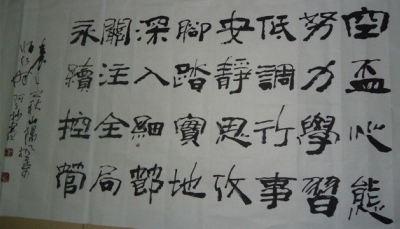 空盃心態
努力學習
低調行事
安靜思攷
腳踏實地
深入細節
關注全局
永續控管